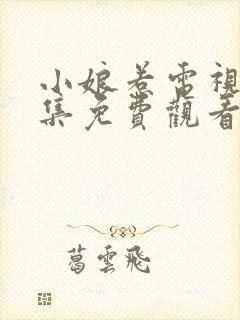 小娘惹電視
集免費觀看
葛雲飛